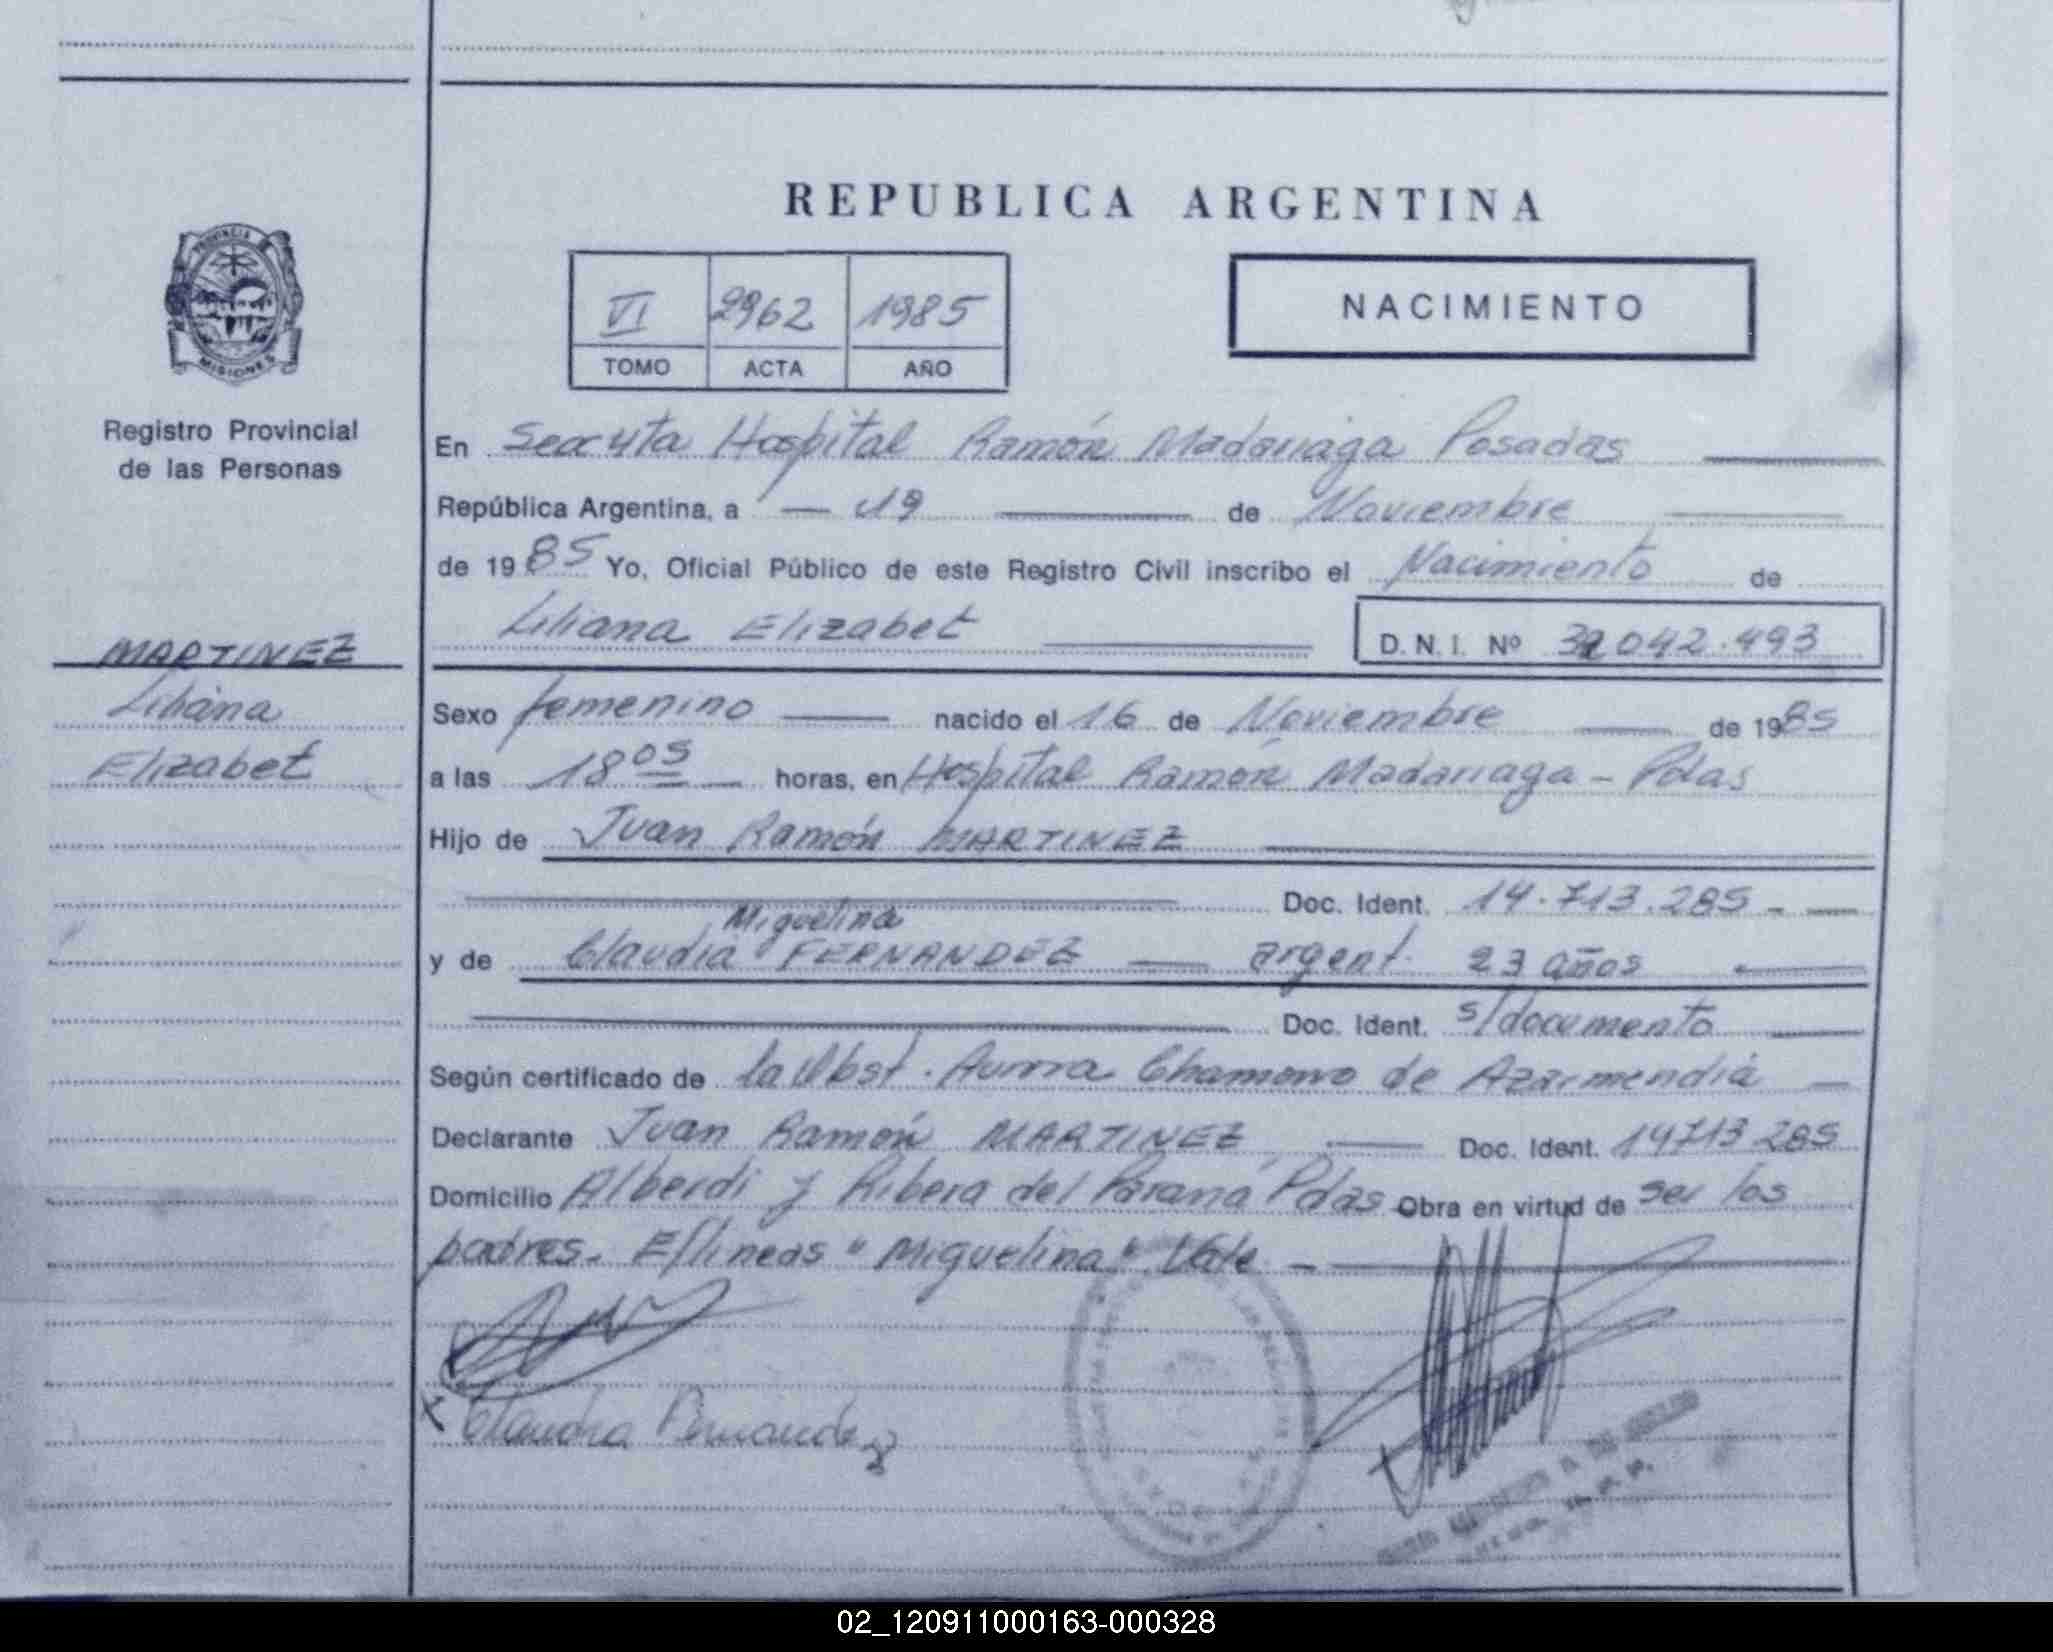 REPUBLICA ARGENTINA
VI 2962 1985
TOMO ACTA AÑO
NACIMIENTO
PROVINCIA DE
MISIONES
Registro Provincial
de las Personas
MARTINEZ
Liliana
Elizabet
En Hospital Ramón Madariaga Posadas
República Argentina, a — 19 — de Noviembre —
de 1985 Yo, Oficial Público de este Registro Civil inscribo el Nacimiento de
Liliana Elizabet — D. N. I. Nº 32042.493
Sexo femenino — nacido el 16 de Noviembre — de 1985
a las 18 05 — horas, en Hospital Ramón Madariaga - Pdas
Hijo de Juan Ramón MARTINEZ —
Doc. Ident. 14.713.285 - —
Miguelina
y de Claudia FERNANDEZ — argent. 23 años —
Doc. Ident. s/documento —
Según certificado de la Obst. Aurora Chamorro de Azarmendia —
Declarante Juan Ramón MARTINEZ — Doc. Ident. 14713285
Domicilio Alberdi y Ribera del Paraná, Pdas Obra en virtud de ser los
padres. E/lineas "Miguelina" Vale —
x Claudia Fernandez
02_120911000163-000328